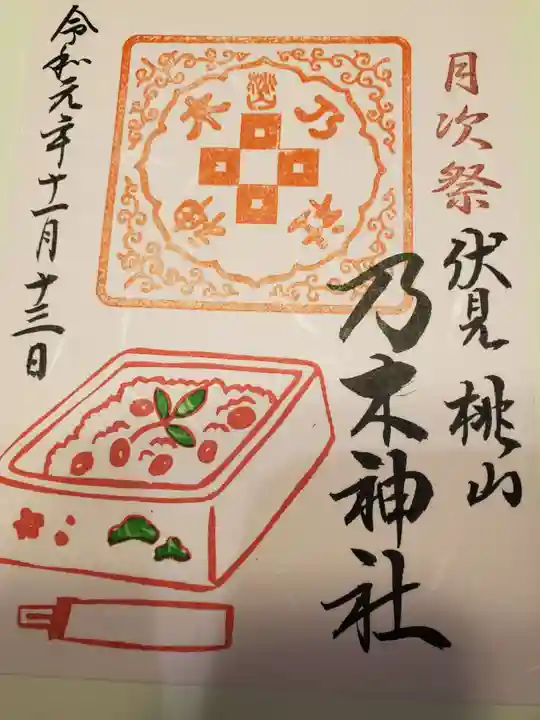 月次祭
伏見桃山
乃木神社
令和元年十一月十三日